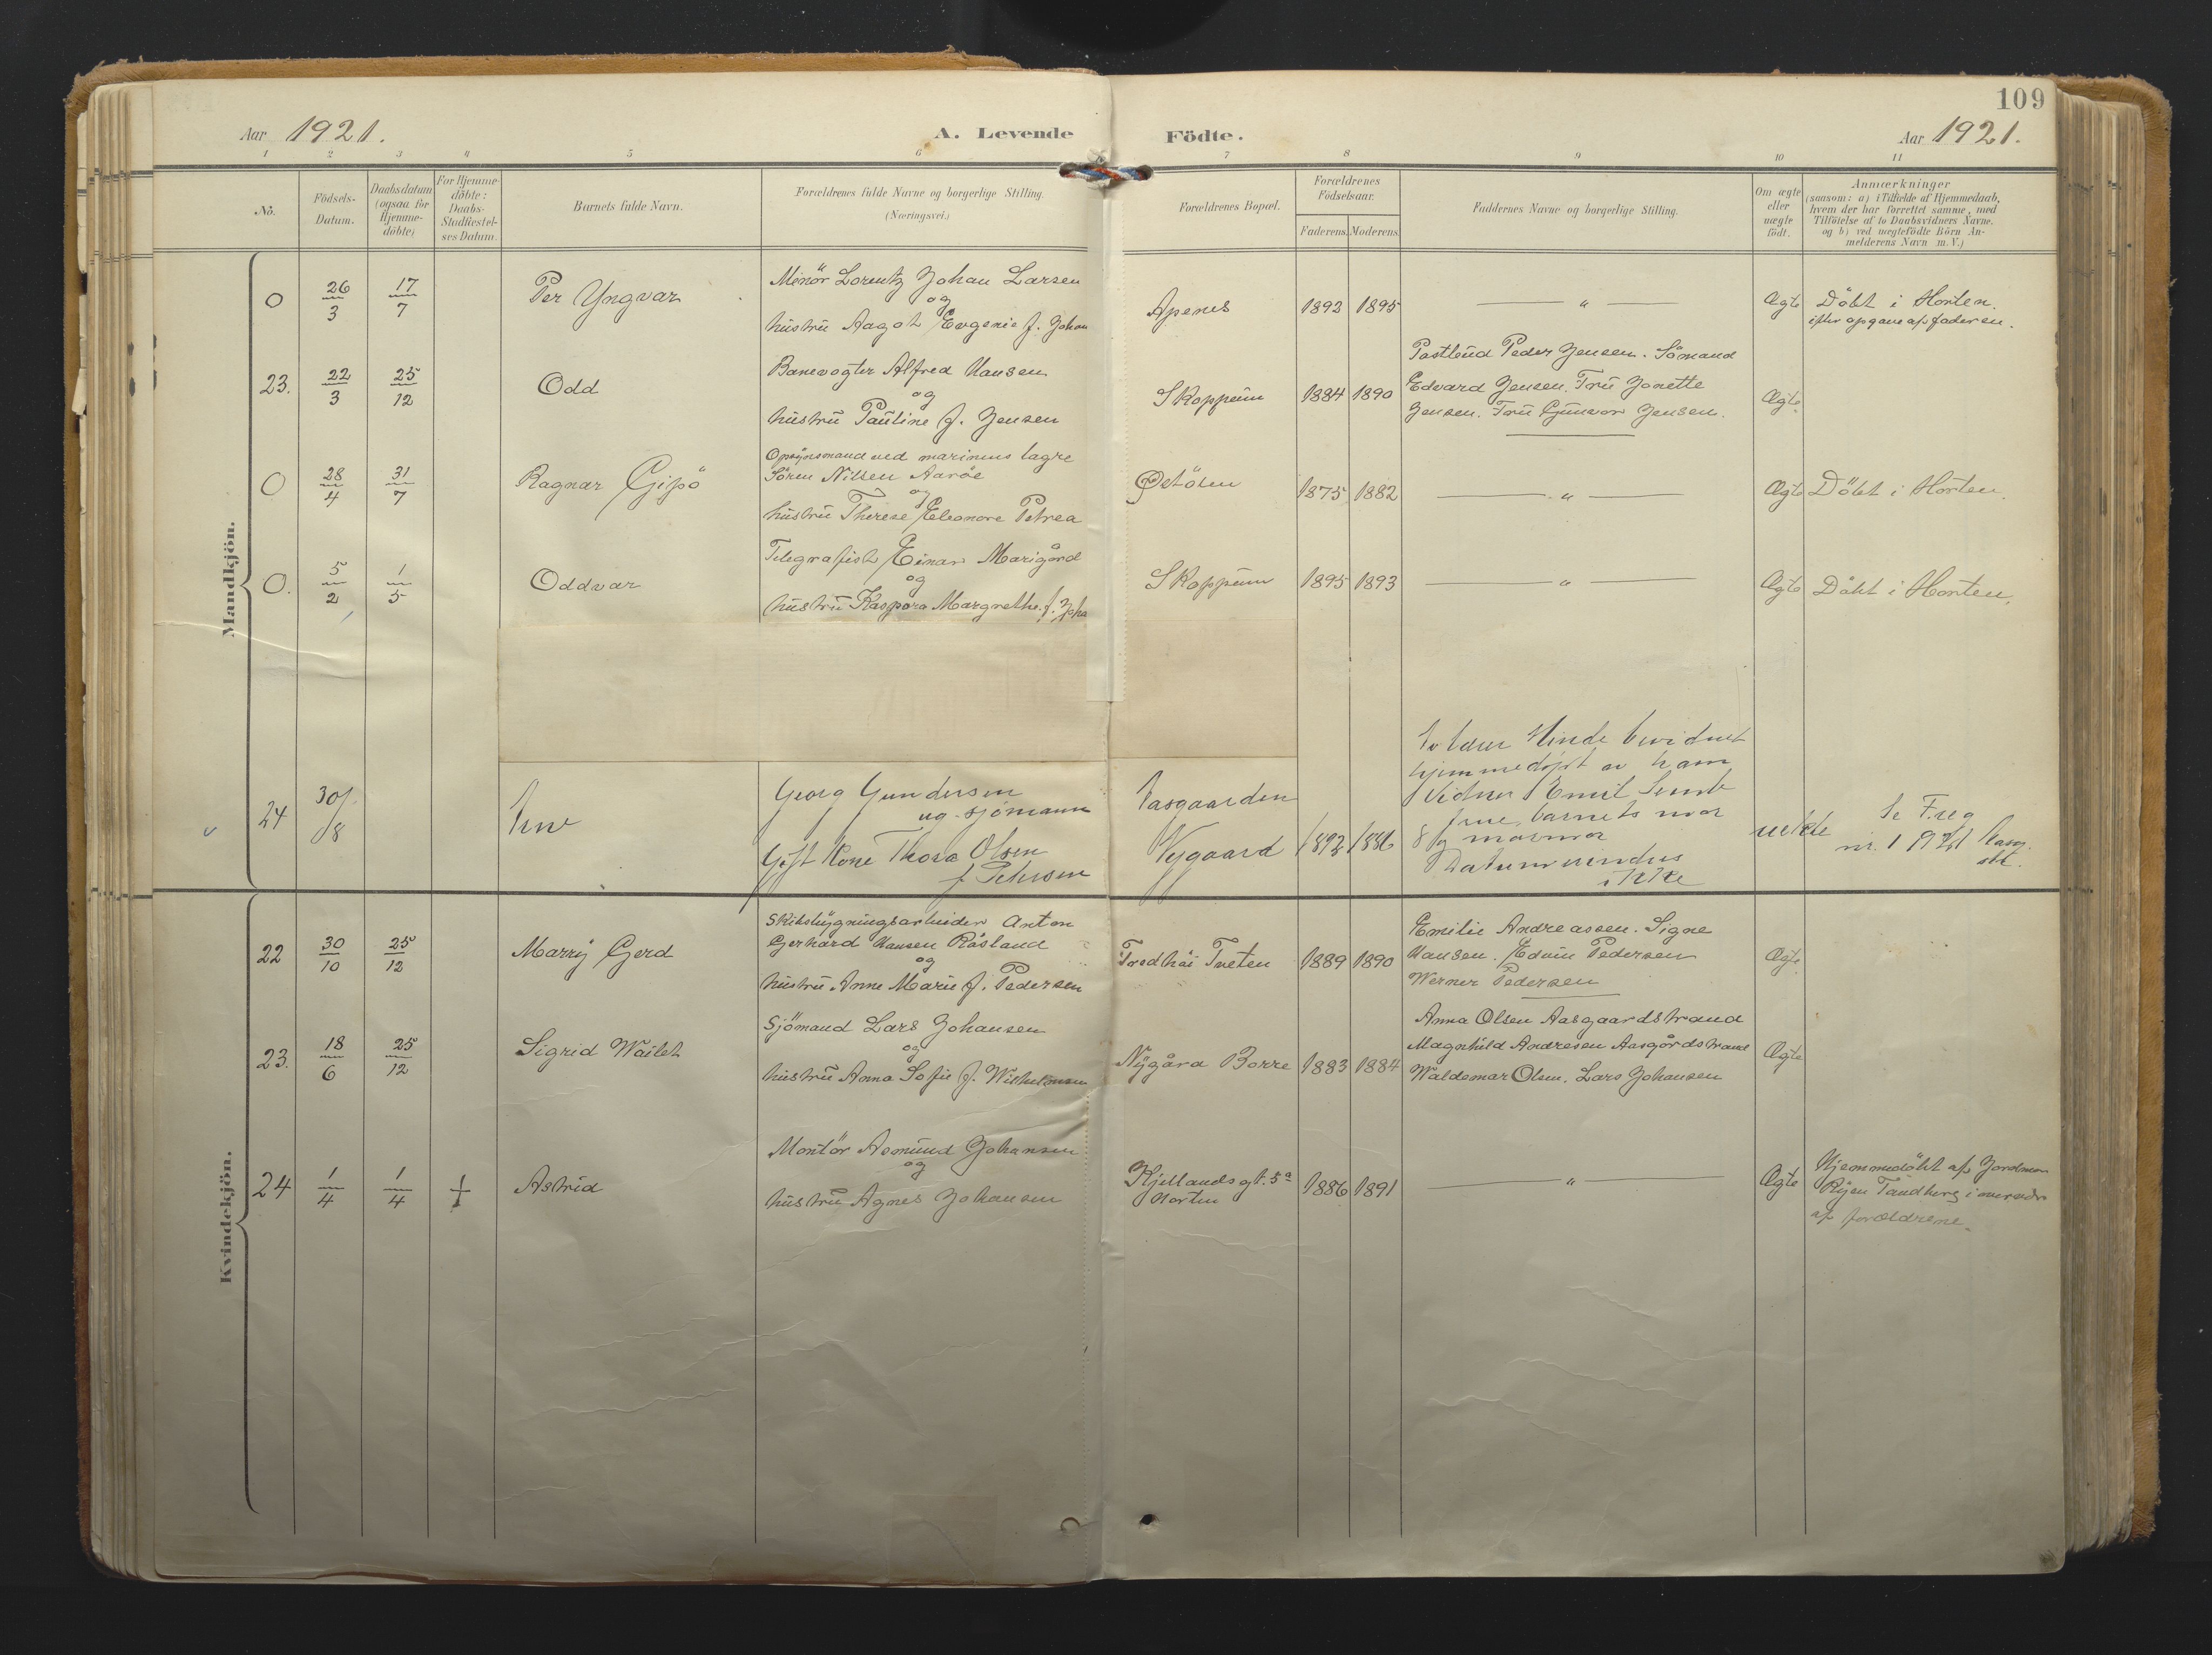 109
Aar 1921.
A. Levende Födte.
Aar 1921.
1 2 3 4 5 6 7 8 9 10 11
No.
Födsels-
Datum.
Daabsdatum
(ogsaa for
Hjemme-
döbte)
For Hjemme-
döbte:
Daabs-
Stadfæstel-
ses Datum.
Barnets fulde Navn.
Forældrenes fulde Navne og borgerlige Stilling.
(Næringsvei.)
Forældrenes Bopæl.
Forældrenes
Födselsaar.
Faderens. Moderens.
Faddernes Navne og borgerlige Stilling.
Om ægte
eller
uægte
födt.
Anmærkninger
(saasom: a) i Tilfælde af Hjemmedaab,
hvem der har forrettet samme, med
Tilföielse af to Daabsvidners Navne.
og b) ved uægtefödte Börn An-
melderens Navn m. V.)
Mandkjön.
0 26/3 17/7 Per Yngvar
Minör Lorentz Johan Larsen
og
hustru Aagot Eugenie f. Johan
Apenes 1892 1895 — " — Ægte
Döbt i Horten.
efter opgave af faderen.
23. 22/3 25/12 Odd
Banevogter Alfred Hansen
og
hustru Pauline f. Jensen
Skoppum 1884 1890
Postbud Peder Jensen. Sömand
Edvard Jensen. Fru Jonette
Jensen. Fru Gunvor Jensen.
Ægte
0 28/4 31/7 Ragnar Gisö
Opsynsmand ved marinens lagre
Sören Nilsen Aaröe
og
hustru Therese Eleonore Petrea
Östöen 1875 1882 — " — Ægte Döbt i Horten.
0. 5/2 1/5 Oddvar
Telegrafist Einar Marigård
og
hustru Kaspara Margrethe f. Joha
Skoppum 1895 1893 — " — Ægte Döbt i Horten.
24 30/8
Georg Gundersen
ug. sjömann
Gift Kone Thora Olsen
f Petersen
Aasgaarden
Nygaard 1892 1886
hjemmedöpt av ham
Vidner Emil
frue, barnets mor
og mormor
Datum
ikke
uekte
nr. 1 1921
Kvindekjön.
22 30/10 25/12 Marry Gerd
Skibsbygningsarbeider Anton
Gerhard Hansen Råsland
og
hustru Anne Marie f. Pedersen
Tveten 1889 1890
Emilie Andreassen. Signe
Hansen. Edvin Pedersen
Werner Pedersen
Ægte
23. 18/6 25/12 Sigrid Wailet
Sjömand Lars Johansen
og
hustru Anna Sofie f. Wilhelmsen
Nygåra Borre 1883 1884
Anna Olsen Aasgaardstrand
Magnhild Andresen Aasgårdstrand
Waldemar Olsen. Lars Johansen
Ægte
24 1/4 1/4 + Astrid
Montör Asmund Johansen
og
hustru Agnes Johansen
Kjellands gt. 5a
Horten
1886 1891 — " — Ægte
Hjemmedöbt af Jordmor
Ryen Tandberg i nærvær
af forældrene.